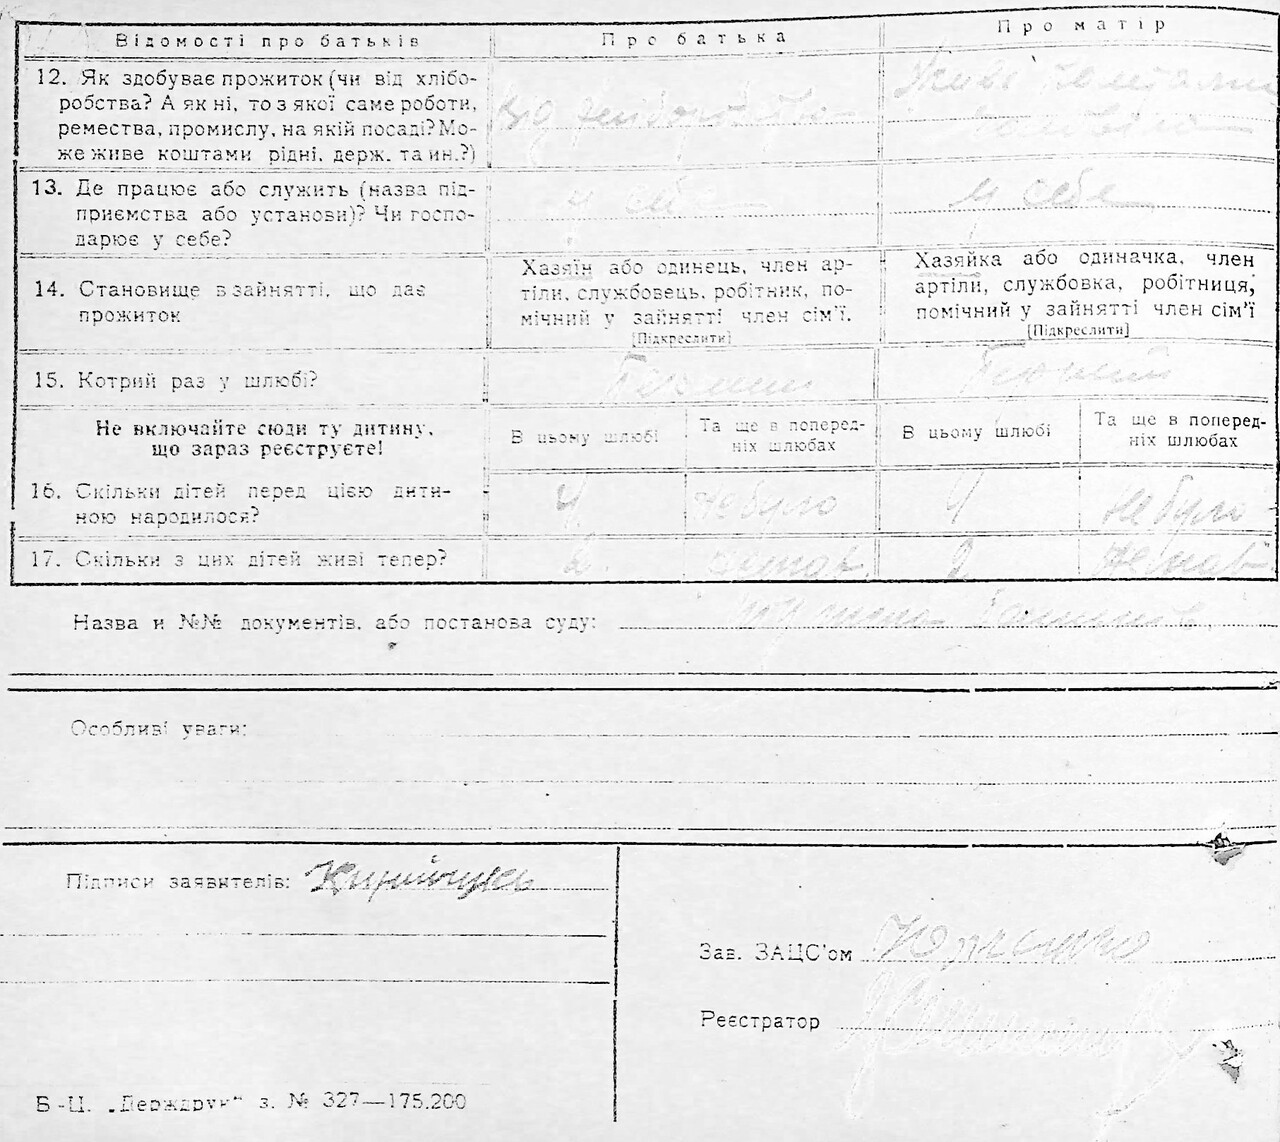 Відомості про батьків
Про батька
Про матір
12. Як здобуває прожиток (чи від хлібо-
робства? А як ні, то з якої саме роботи,
ремества, промислу, на якій посаді? Мо-
же живе коштами рідні, держ. та ин.?)
Від хліборобства
Живе коштами
чоловіка
13. Де працює або служить (назва під-
приємства або установи)? Чи госпо-
дарює у себе?
у себе
у себе
14. Становище в зайнятті, що дає
прожиток
Хазяїн або одинець, член ар-
тіли, службовець, робітник, по-
мічний у зайнятті член сім'ї.
[Підкреслити]
Хазяйка або одиначка, член
артіли, службовка, робітниця,
помічний у зайнятті член сім'ї
[Підкреслити]
15. Котрий раз у шлюбі?
Не включайте сюди ту дитину,
що зараз реєструєте!
В цьому шлюбі
Та ще в поперед-
ніх шлюбах
В цьому шлюбі
Та ще в поперед-
ніх шлюбах
16. Скільки дітей перед цією дити-
ною народилося?
4
не було
4
не було
17. Скільки з цих дітей живі тепер?
2
немає
2
немає
Назва и №№ документів, або постанова суду:
Особливі уваги:
Підписи заявителів:
Зав. ЗАЦС'ом
Реєстратор
Б-Ц. „Держдрук" з. № 327—175.200